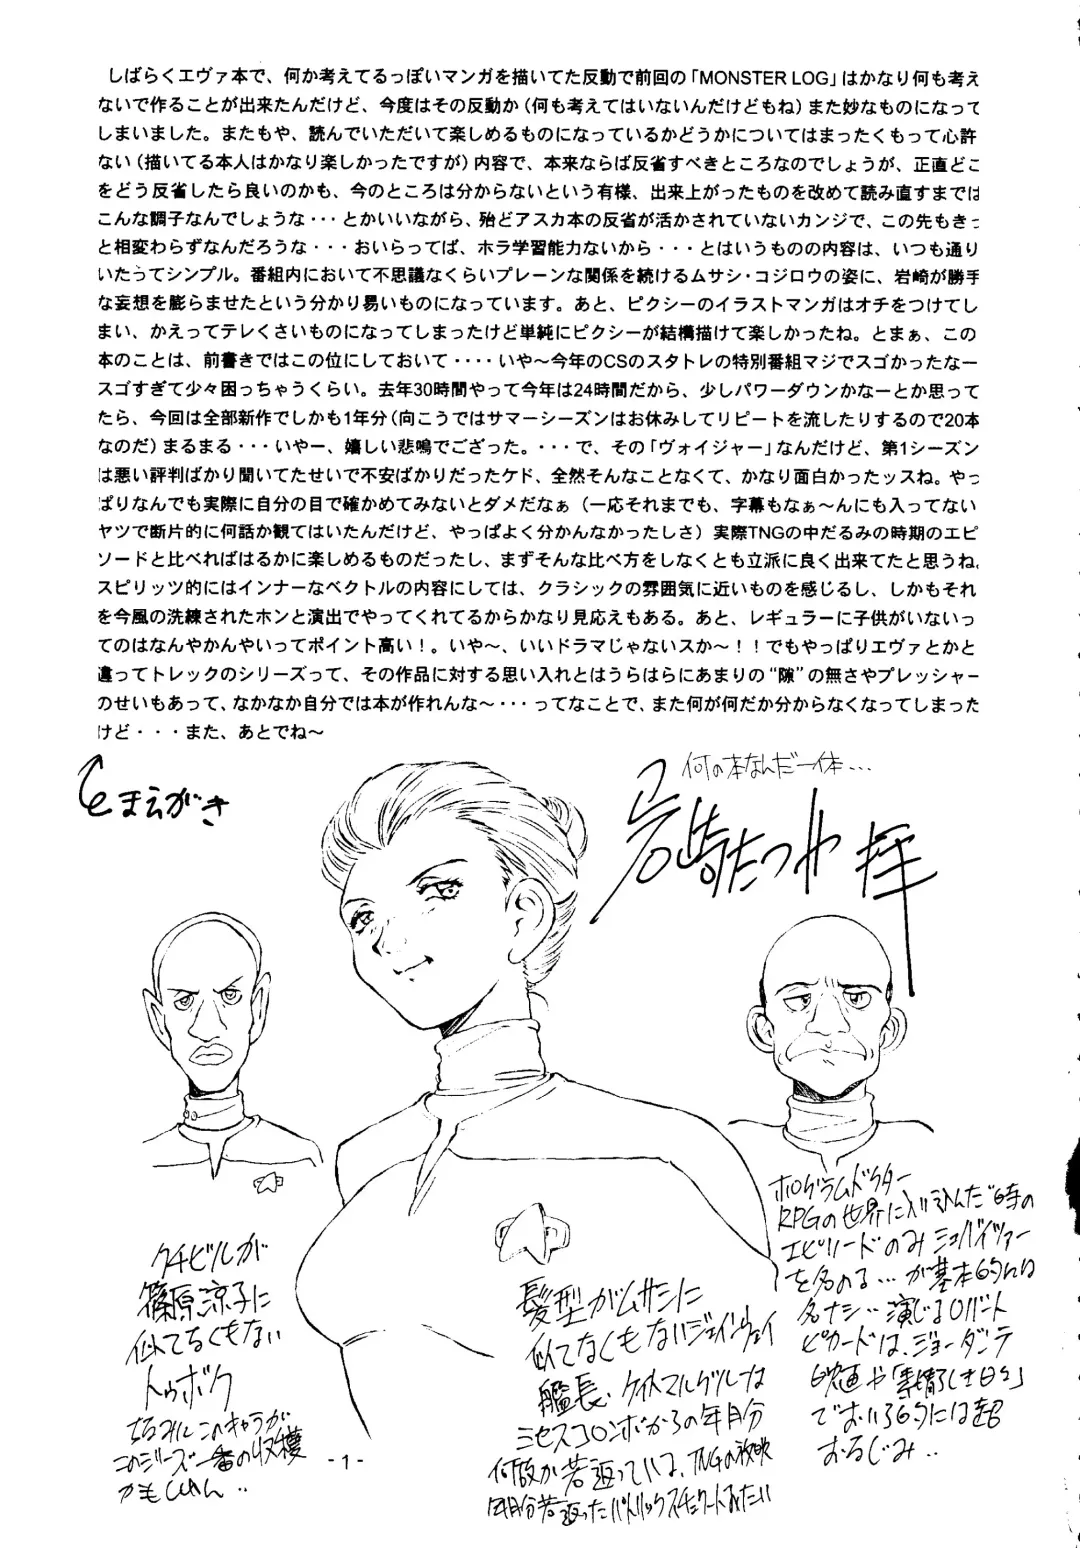 しばらくエヴァ本で、何か考えてるっぽいマンガを描いてた反動で前回の「MONSTER LOG」はかなり何も考え
ないで作ることが出来たんだけど、今度はその反動か(何も考えてはいないんだけどもね)また妙なものになって
しまいました。またもや、読んでいただいて楽しめるものになっているかどうかについてはまったくもって心許
ない(描いてる本人はかなり楽しかったですが)内容で、本来ならば反省すべきところなのでしょうが、正直どこ
をどう反省したら良いのかも、今のところは分からないという有様、出来上がったものを改めて読み直すまでは
こんな調子なんでしょうな・・・とかいいながら、殆どアスカ本の反省が活かされていないカンジで、この先もきっ
と相変わらずなんだろうな・・・おいらってば、ホラ学習能力ないから・・・とはいうものの内容は、いつも通り
いたってシンプル。番組内において不思議なくらいプレーンな関係を続けるムサシ・コジロウの姿に、岩崎が勝手
な妄想を膨らませたという分かり易いものになっています。あと、ピクシーのイラストマンガはオチをつけてし
まい、かえってテレくさいものになってしまったけど単純にピクシーが結構描けて楽しかったね。とまぁ、この
本のことは、前書きではこの位にしておいて・・・・いや〜今年のCSのスタトレの特別番組マジでスゴかったなー
スゴすぎて少々困っちゃうくらい。去年30時間やって今年は24時間だから、少しパワーダウンかなーとか思って
たら、今回は全部新作でしかも1年分(向こうではサマーシーズンはお休みしてリピートを流したりするので20本
なのだ)まるまる・・・いやー、嬉しい悲鳴でござった。・・・で、その「ヴォイジャー」なんだけど、第1シーズン
は悪い評判ばかり聞いてたせいで不安ばかりだったケド、全然そんなことなくて、かなり面白かったッスね。やっ
ぱりなんでも実際に自分の目で確かめてみないとダメだなぁ(一応それまでも、字幕もなぁ〜んにも入ってない
ヤツで断片的に何話か観てはいたんだけど、やっぱよく分かんなかったしさ)実際TNGの中だるみの時期のエピ
ソードと比べればはるかに楽しめるものだったし、まずそんな比べ方をしなくとも立派に良く出来てたと思うね。
スピリッツ的にはインナーなベクトルの内容にしては、クラシックの雰囲気に近いものを感じるし、しかもそれ
を今風の洗練されたホンと演出でやってくれてるからかなり見応えもある。あと、レギュラーに子供がいないっ
てのはなんやかんやいってポイント高い！。いや〜、いいドラマじゃないスか〜！！でもやっぱりエヴァとかと
違ってトレックのシリーズって、その作品に対する思い入れとはうらはらにあまりの“隙”の無さやプレッシャー
のせいもあって、なかなか自分では本が作れんな〜・・・ってなことで、また何が何だか分からなくなってしまった
けど・・・また、あとでね〜
とまえがき
何の本なんだ一体…
岩崎たつや 拝
クチビルが
篠原涼子に
似てなくもない
トゥボク
ちなみにこのキャラが
このシリーズ一番の収穫
かもしれん‥
髪型がムサシに
似てなくもないジェインウェイ
艦長、ケイト・マルグルーは
ミセスコロンボからの年月分
何故か若返っている、TNGの放映
年月分若返ったパトリック・スチュワートみたい
ホログラムドクター
RPGの世界に入り込んだ時の
エピソードのみシュバイツァー
を名のる…が基本的には
名ナシ‥演じるロバート
ピカードは、ジョー・ダンテ
映画や「素晴らしき日々」
でおいら的には超
おなじみ‥
- 1 -